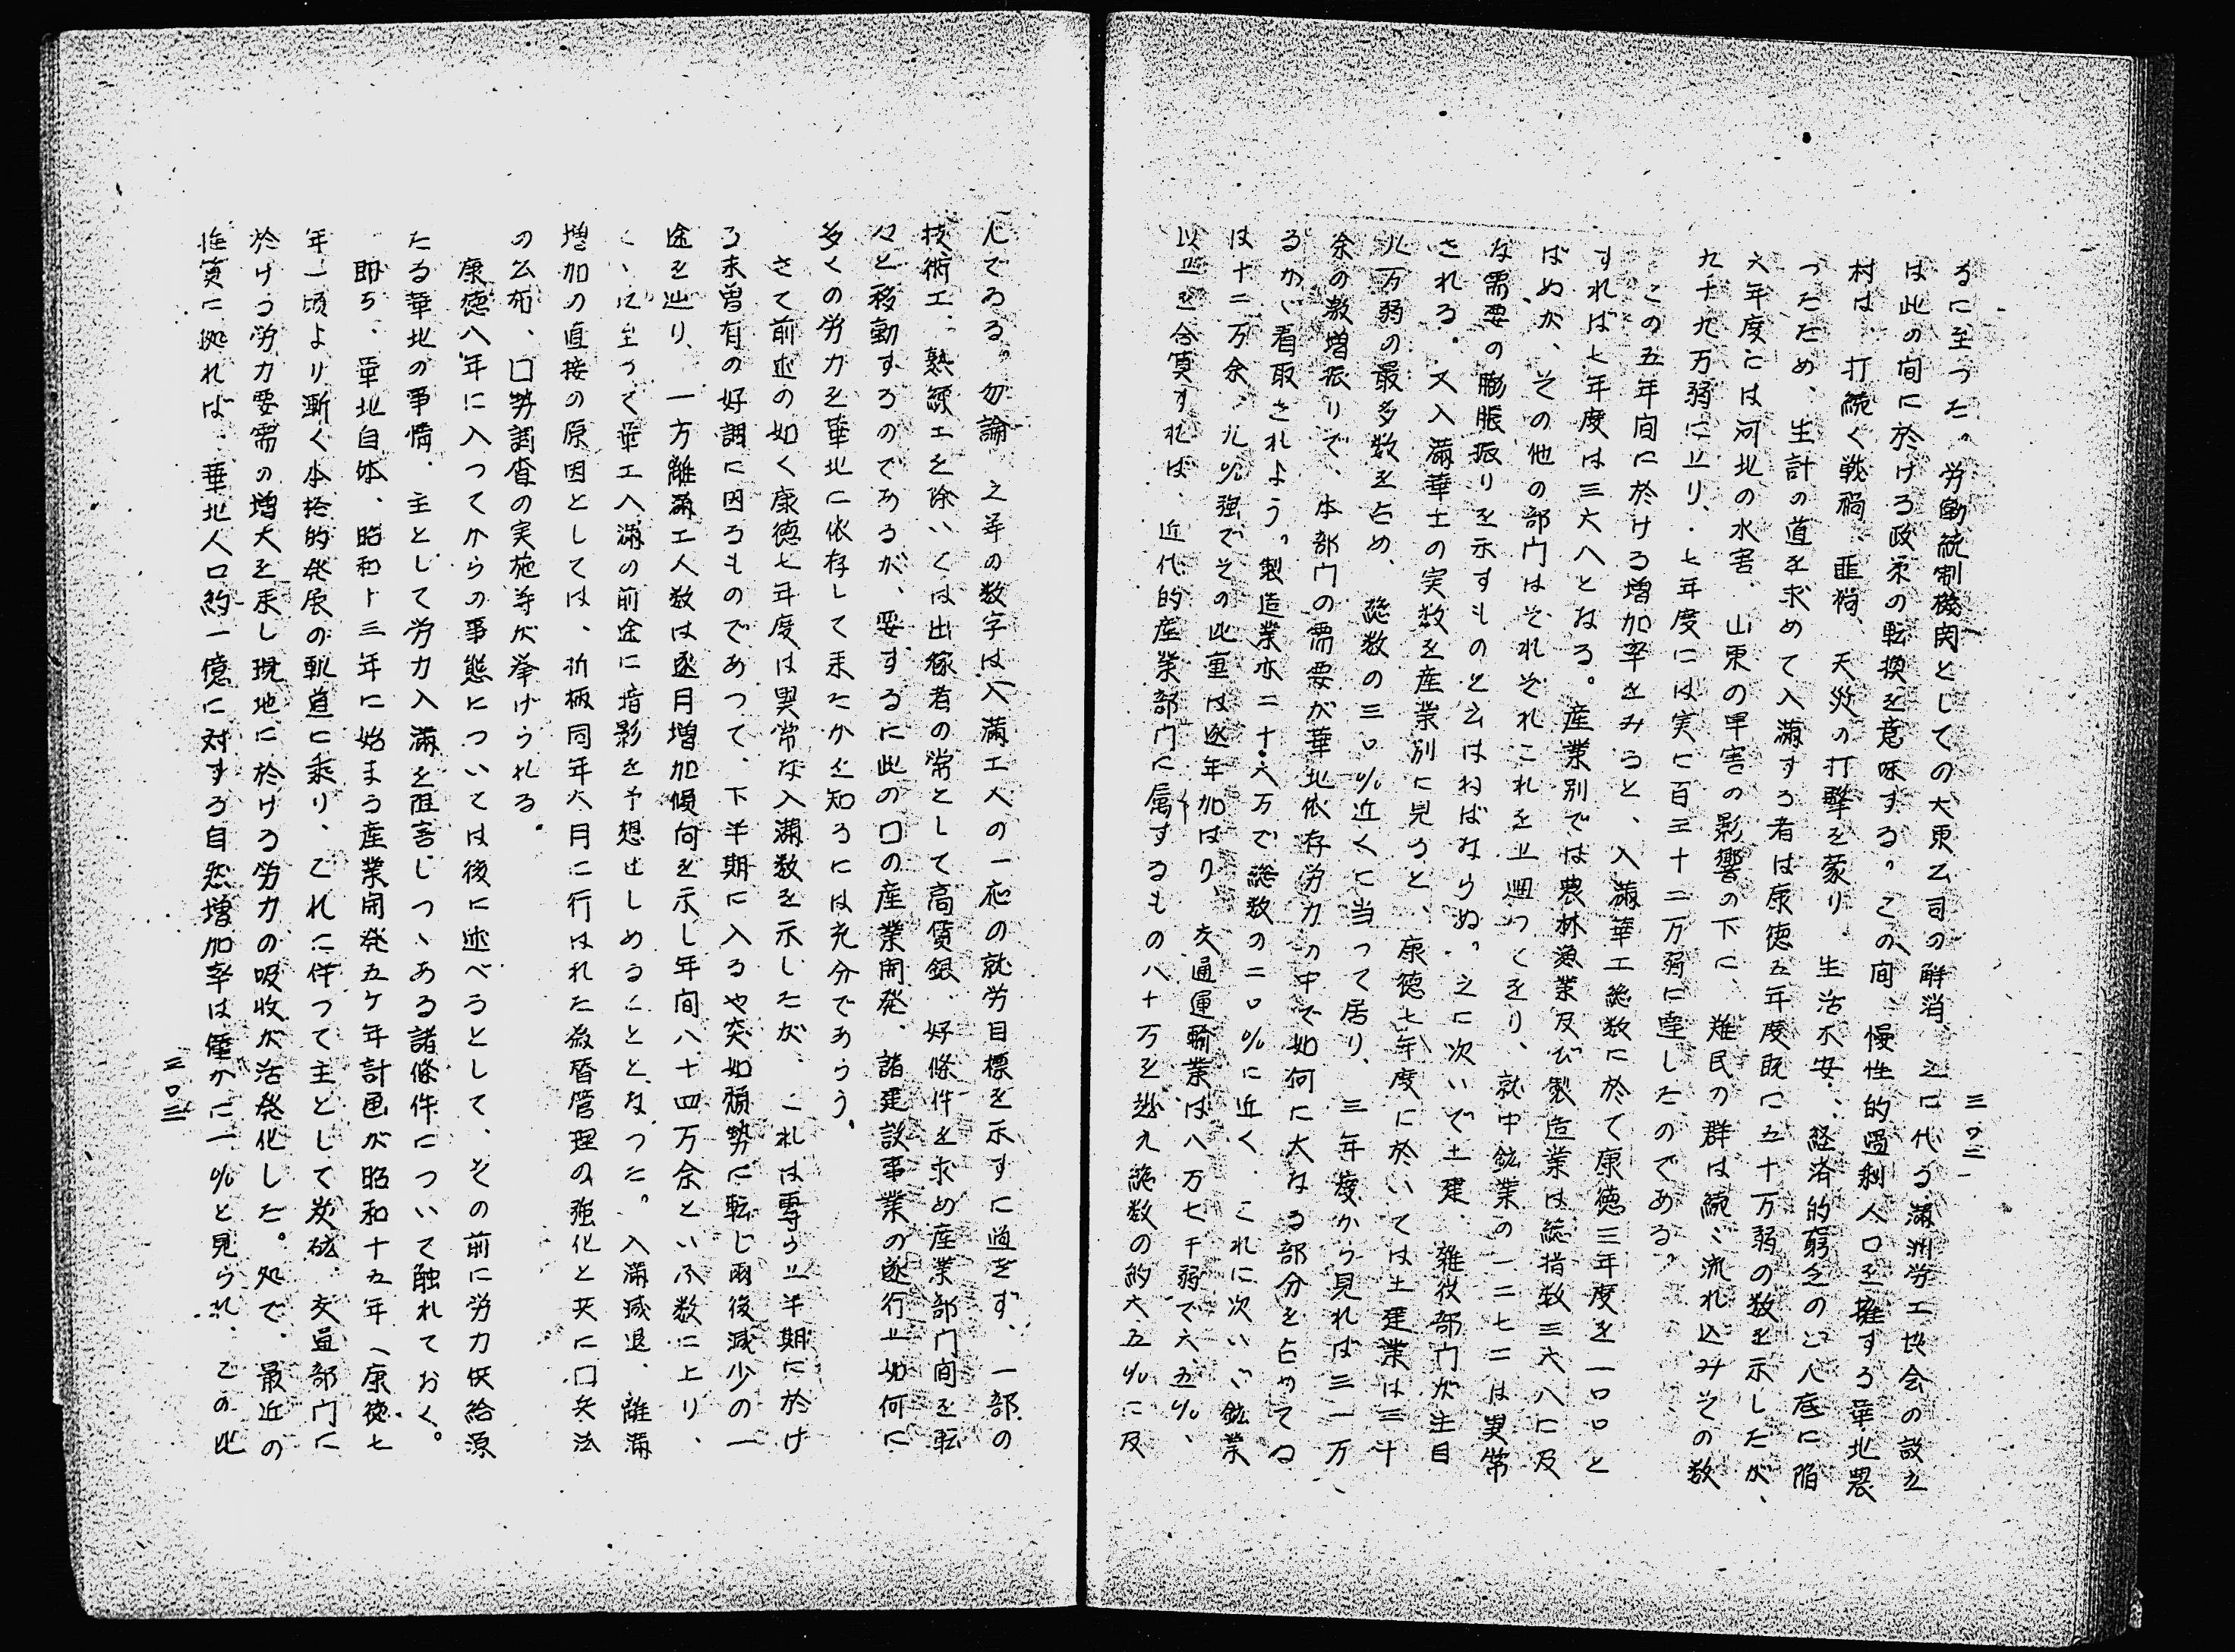 三〇二
るに至つた。労働統制機関としての大東公司の解消、之に代る満洲労工協会の設立
は此の間に於ける政策の転換を意味する。この間、慢性的過剰人口を擁する華北農
村は、打続く戦禍、匪禍、天災の打撃を蒙り、生活不安、経済的窮乏のどん底に陥
つたため、生計の道を求めて入満する者は康徳五年度既に五十万弱の数を示したが、
六年度には河北の水害、山東の旱害の影響の下に、難民の群は続々流れ込みその数
九十九万弱に上り、七年度には実に百三十二万弱に達したのである。
この五年間に於ける増加率をみると、入満華工総数に於て康徳三年度を一〇〇と
すれば七年度は三六八となる。産業別では農林漁業及び製造業は総指数三六八に及
ばぬが、その他の部門はそれぞれこれを上廻つてをり、就中鉱業の一二七二は異常
な需要の膨脹振りを示すものと云はねばならぬ。之に次いで土建、雑役部門が注目
される。又入満華工の実数を産業別に見ると、康徳七年度に於いては土建業は三十
九万弱の最多数を占め、総数の三〇％近くに当つて居り、三年度から見れば三一万
余の激増振りで、本部門の需要が華北依存労力の中で如何に大なる部分を占めてゐ
るかゞ看取されよう。製造業亦二十六万で総数の二〇％に近く、これに次いゞ鉱業
は十二万余、九％強でその比重は逐年加はり、交通運輸業は八万七千弱で六、五％、
以上を合算すれば、近代的産業部門に属するもの八十万を越え総数の約六五％に及
んでゐる。勿論、之等の数字は入満工人の一応の就労目標を示すに過ぎず、一部の
技術工、熟練工を除いては出稼者の常として高賃銀、好條件を求め産業部門間を転
々と移動するのであるが、要するに此の国の産業開発、諸建設事業の遂行上如何に
多くの労力を華北に依存して来たかを知るには充分であらう。
さて前述の如く康徳七年度は異常な入満数を示したが、これは専ら上半期に於け
る未曽有の好調に因るものであつて、下半期に入るや突如頽勢に転じ爾後減少の一
途を辿り、一方離満工人数は逐月増加傾向を示し年間八十四万余といふ数に上り、
こゝに至つて華工入満の前途に暗影を予想せしめることとなつた。入満減退、離満
増加の直接の原因としては、折柄同年六月に行はれた為替管理の強化と共に国兵法
の公布、国勢調査の実施等が挙げられる。
康徳八年に入つてからの事態については後に述べるとして、その前に労力供給源
たる華北の事情、主として労力入満を阻害しつゝある諸條件について触れておく。
即ち、華北自体、昭和十三年に始まる産業開発五ケ年計画が昭和十五年（康徳七
年）頃より漸く本格的発展の軌道に乗り、これに伴つて主として炭砿、交通部門に
於ける労力要需の増大を来し現地に於ける労力の吸收が活発化した。処で、最近の
推算に拠れば、華北人口約一億に対する自然増加率は僅かに一％と見られ、この比
三〇三